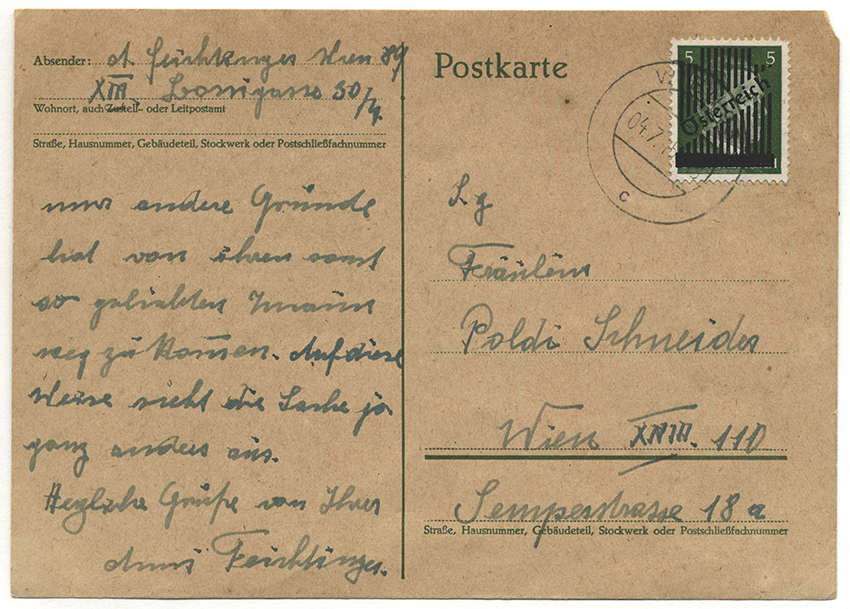 Absender: A. Feichtinger Wien 89
XIII. 30/4.
Wohnort, auch Zustell- oder Leitpostamt
Straße, Hausnummer, Gebäudeteil, Stockwerk oder Postschließfachnummer
nur andere Gründe
hat von ihren sonst
so geliebten
weg zu kom̄en. Auf diese
Weise sieht die Sache ja
ganz anders aus.
Herzliche Grüße von Ihrer
Anni Feichtinger.
Postkarte
5 5
Österreich
04.7.
c
S. g
Fräulein
Poldi Schneider
Wien XVIII. 110
Semperstrasse 18 a
Straße, Hausnummer, Gebäudeteil, Stockwerk oder Postschließfachnummer